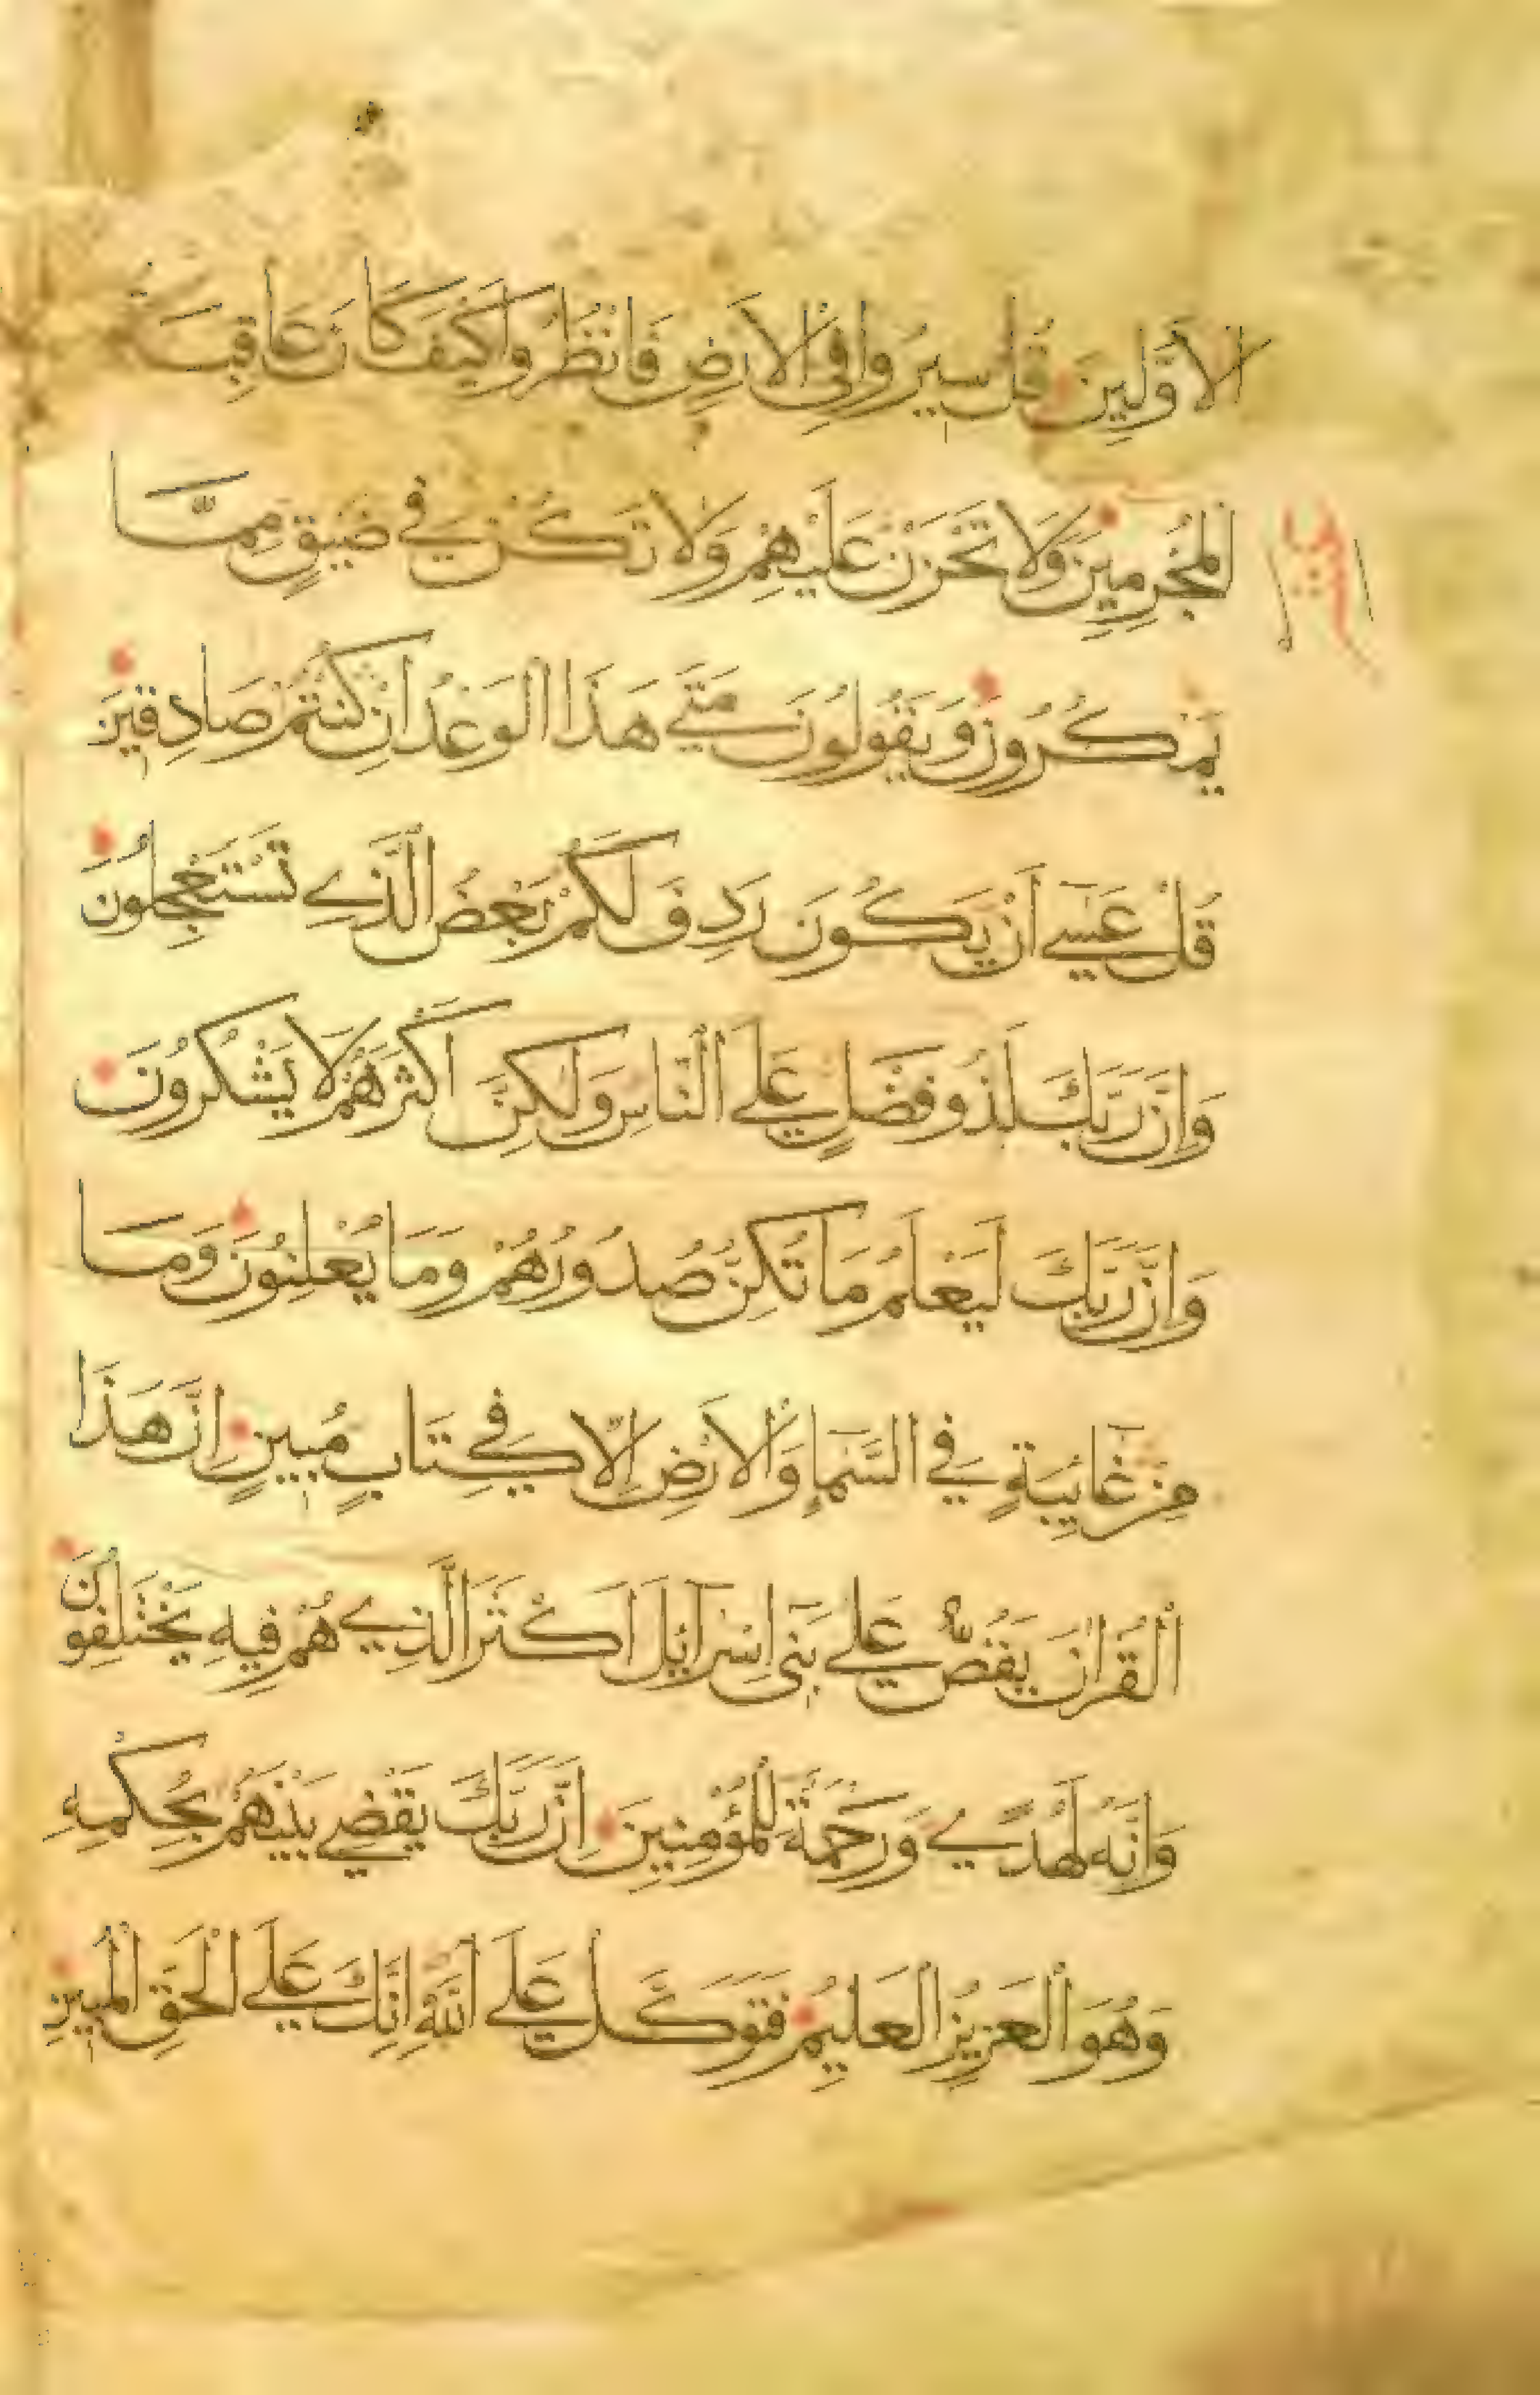 الْأَوَّلِينَ قُلْ سِيرُوا فِي الْأَرْضِ فَانْظُرُوا كَيْفَ كَانَ عَاقِبَةُ
الْمُجْرِمِينَ وَلَا تَحْزَنْ عَلَيْهِمْ وَلَا تَكُنْ فِي ضَيْقٍ مِمَّا
يَمْكُرُونَ وَيَقُولُونَ مَتَى هَذَا الْوَعْدُ إِنْ كُنْتُمْ صَادِقِينَ
قُلْ عَسَى أَنْ يَكُونَ رَدِفَ لَكُمْ بَعْضُ الَّذِي تَسْتَعْجِلُونَ
وَإِنَّ رَبَّكَ لَذُو فَضْلٍ عَلَى النَّاسِ وَلَكِنَّ أَكْثَرَهُمْ لَا يَشْكُرُونَ
وَإِنَّ رَبَّكَ لَيَعْلَمُ مَا تُكِنُّ صُدُورُهُمْ وَمَا يُعْلِنُونَ وَمَا
مِنْ غَائِبَةٍ فِي السَّمَاءِ وَالْأَرْضِ إِلَّا فِي كِتَابٍ مُبِينٍ إِنَّ هَذَا
الْقُرْآنَ يَقُصُّ عَلَى بَنِي إِسْرَائِيلَ أَكْثَرَ الَّذِي هُمْ فِيهِ يَخْتَلِفُونَ
وَإِنَّهُ لَهُدًى وَرَحْمَةٌ لِلْمُؤْمِنِينَ إِنَّ رَبَّكَ يَقْضِي بَيْنَهُمْ بِحُكْمِهِ
وَهُوَ الْعَزِيزُ الْعَلِيمُ فَتَوَكَّلْ عَلَى اللَّهِ إِنَّكَ عَلَى الْحَقِّ الْمُبِينِ